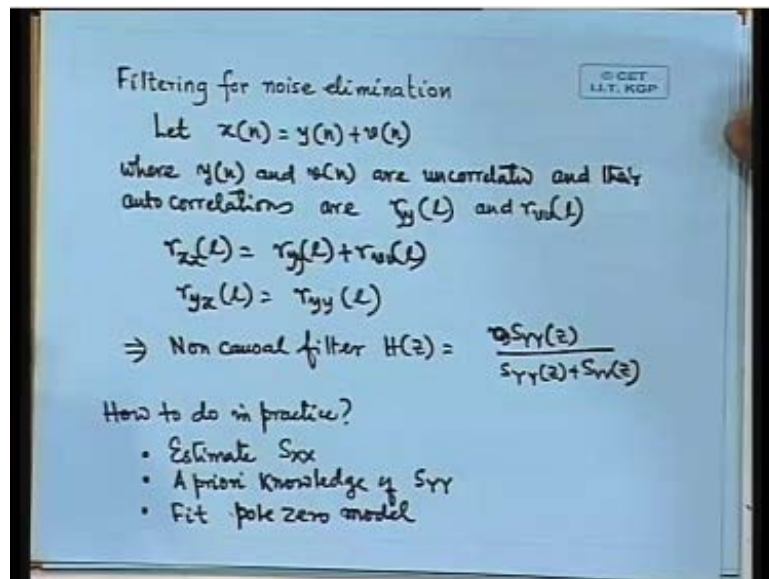 Filtering for noise elimination
© CET
I.I.T. KGP
Let x(n) = y(n) + v(n)
where y(n) and v(n) are uncorrelated and their
autocorrelations are ryy(l) and rvv(l)
rxx(l) = ryy(l) + rvv(l)
ryx(l) = ryy(l)
⇒ Non causal filter H(z) = SYY(z) / SYY(z) + SVV(z)
How to do in practice?
• Estimate Sxx
• A priori knowledge of SYY
• Fit pole zero model